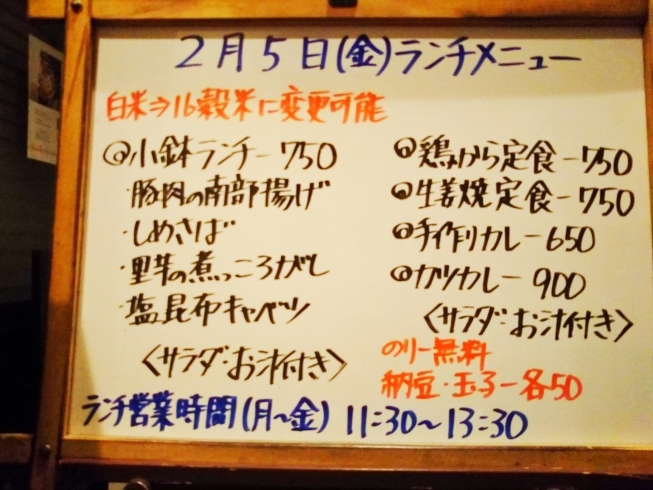 2月5日(金)ランチメニュー
白米⇒16穀米に変更可能
◎小鉢ランチー750
・豚肉の南部揚げ
・しめさば
・里芋の煮っころがし
・塩昆布キャベツ
〈サラダ・お汁付き〉
◎鶏から定食ー750
◎生姜焼定食ー750
◎手作りカレー650
◎カツカレー900
〈サラダ・お汁付き〉
のりー無料
納豆・玉子ー各50
ランチ営業時間(月~金) 11:30~13:30